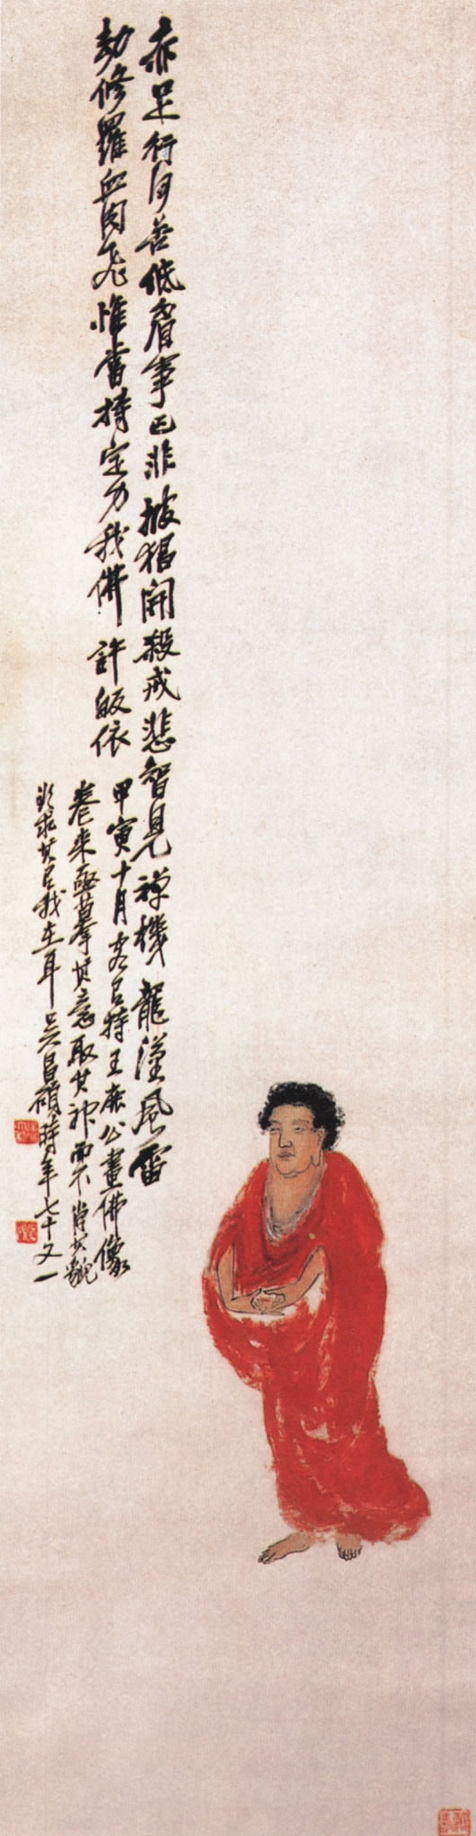 赤足行何善低眉事已非披猖開殺戒悲智見禪機龍漢風雷
劫修羅血肉飛惟當持定力我佛許皈依
甲寅十月客有持王公畫佛像
卷來亟摹其意取其神而不肖其貌
求其有我在耳吳昌碩時年七十又一